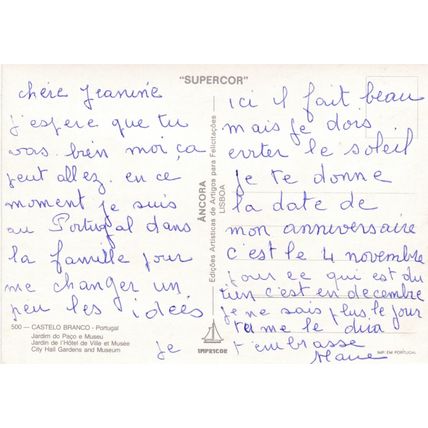 "SUPERCOR"
chère Jeanine
j'espere que tu
vas bien moi ça
peut allez. en ce
moment je suis
au Portugal dans
la famille pour
me changer un
peu les ideés
500 — CASTELO BRANCO - Portugal
Jardim do Paço e Museu
Jardin de l'Hôtel de Ville et Musée
City Hall Gardens and Museum
je
ÂNCORA
Edições Artísticas de Artigos para Felicitações
LISBOA
IMPRICOR
ici il fait beau
mais je dors
eviter le soleil
je te donne
la date de
mon anniversaire
c'est le 4 novembre
pour ce qui est du
tien c'est en decembre
je ne sais plus le jour
tu me le dira
t'embrasse
IMP. EM PORTUGAL